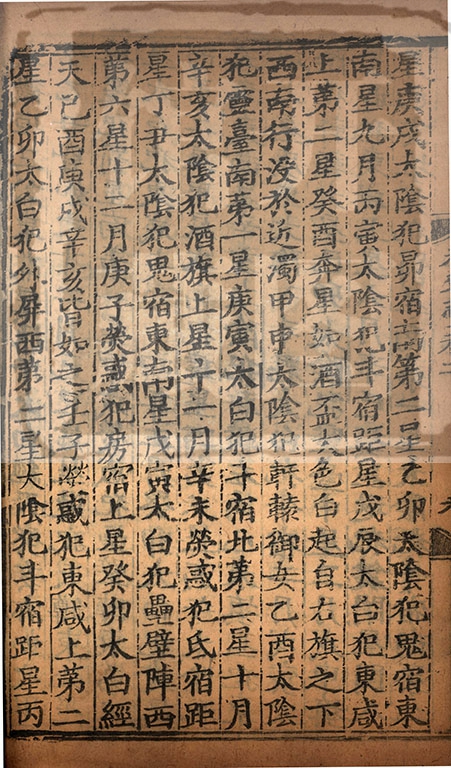 星庚戌太陰犯昴宿南第二星乙卯太陰犯鬼宿東
南星九月丙寅太陰犯斗宿距星戊辰太白犯東咸
上第二星癸酉奔星如酒盃大色白起自右旗之下
西南行没於近濁甲申太陰犯軒轅御女乙酉太陰
犯靈臺南第一星庚寅太白犯斗宿北第二星十月
辛亥太陰犯酒旗上星十一月辛未熒惑犯氐宿距
星丁丑太陰犯鬼宿東南星戊寅太白犯壘壁陣西
第六星十二月庚子熒惑犯房宿上星癸卯太白經
天己酉庚戌辛亥皆如之壬子熒惑犯東咸上第二
星乙卯太白犯外屏西第二星太陰犯斗宿距星丙